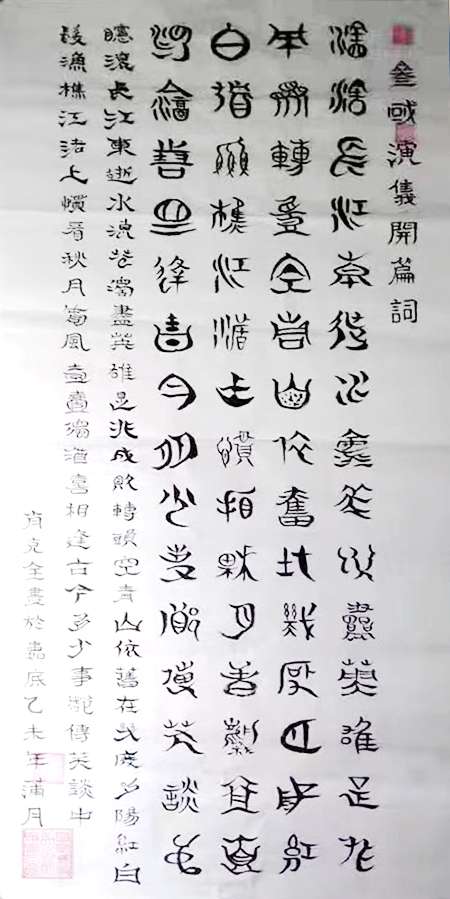 叁國演儀開篇詞
滾滾長江東逝水浪花淘盡英雄是非
成敗轉頭空青山依舊在幾度夕陽紅
白髮漁樵江渚上慣看秋月春風壹壺
濁酒喜相逢古今多少事都付笑談中
滾滾長江東逝水浪花淘盡英雄是非成敗轉頭空青山依舊在幾度夕陽紅白
髮漁樵江渚上慣看秋月春風壹壺濁酒喜相逢古今多少事都付笑談中
肖克全書於底乙未年蒲月